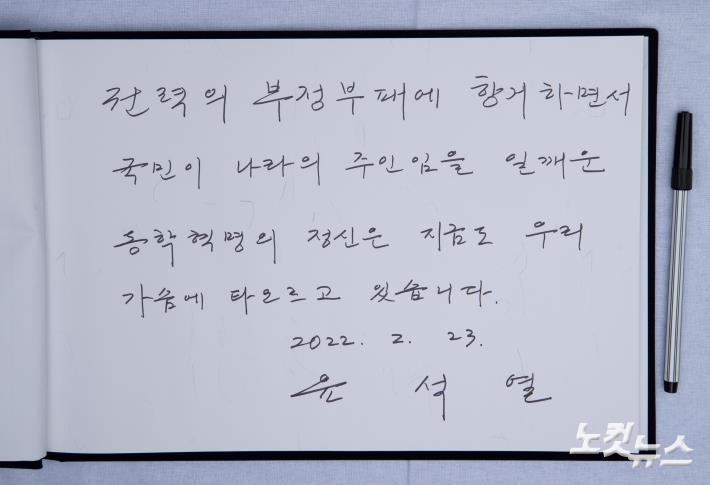 권력의 부정부패에 항거하면서
국민이 나라의 주인임을 일깨운
동학혁명의 정신은 지금도 우리
가슴에 타오르고 있습니다.
2022. 2. 23.
윤 석 열
노컷뉴스